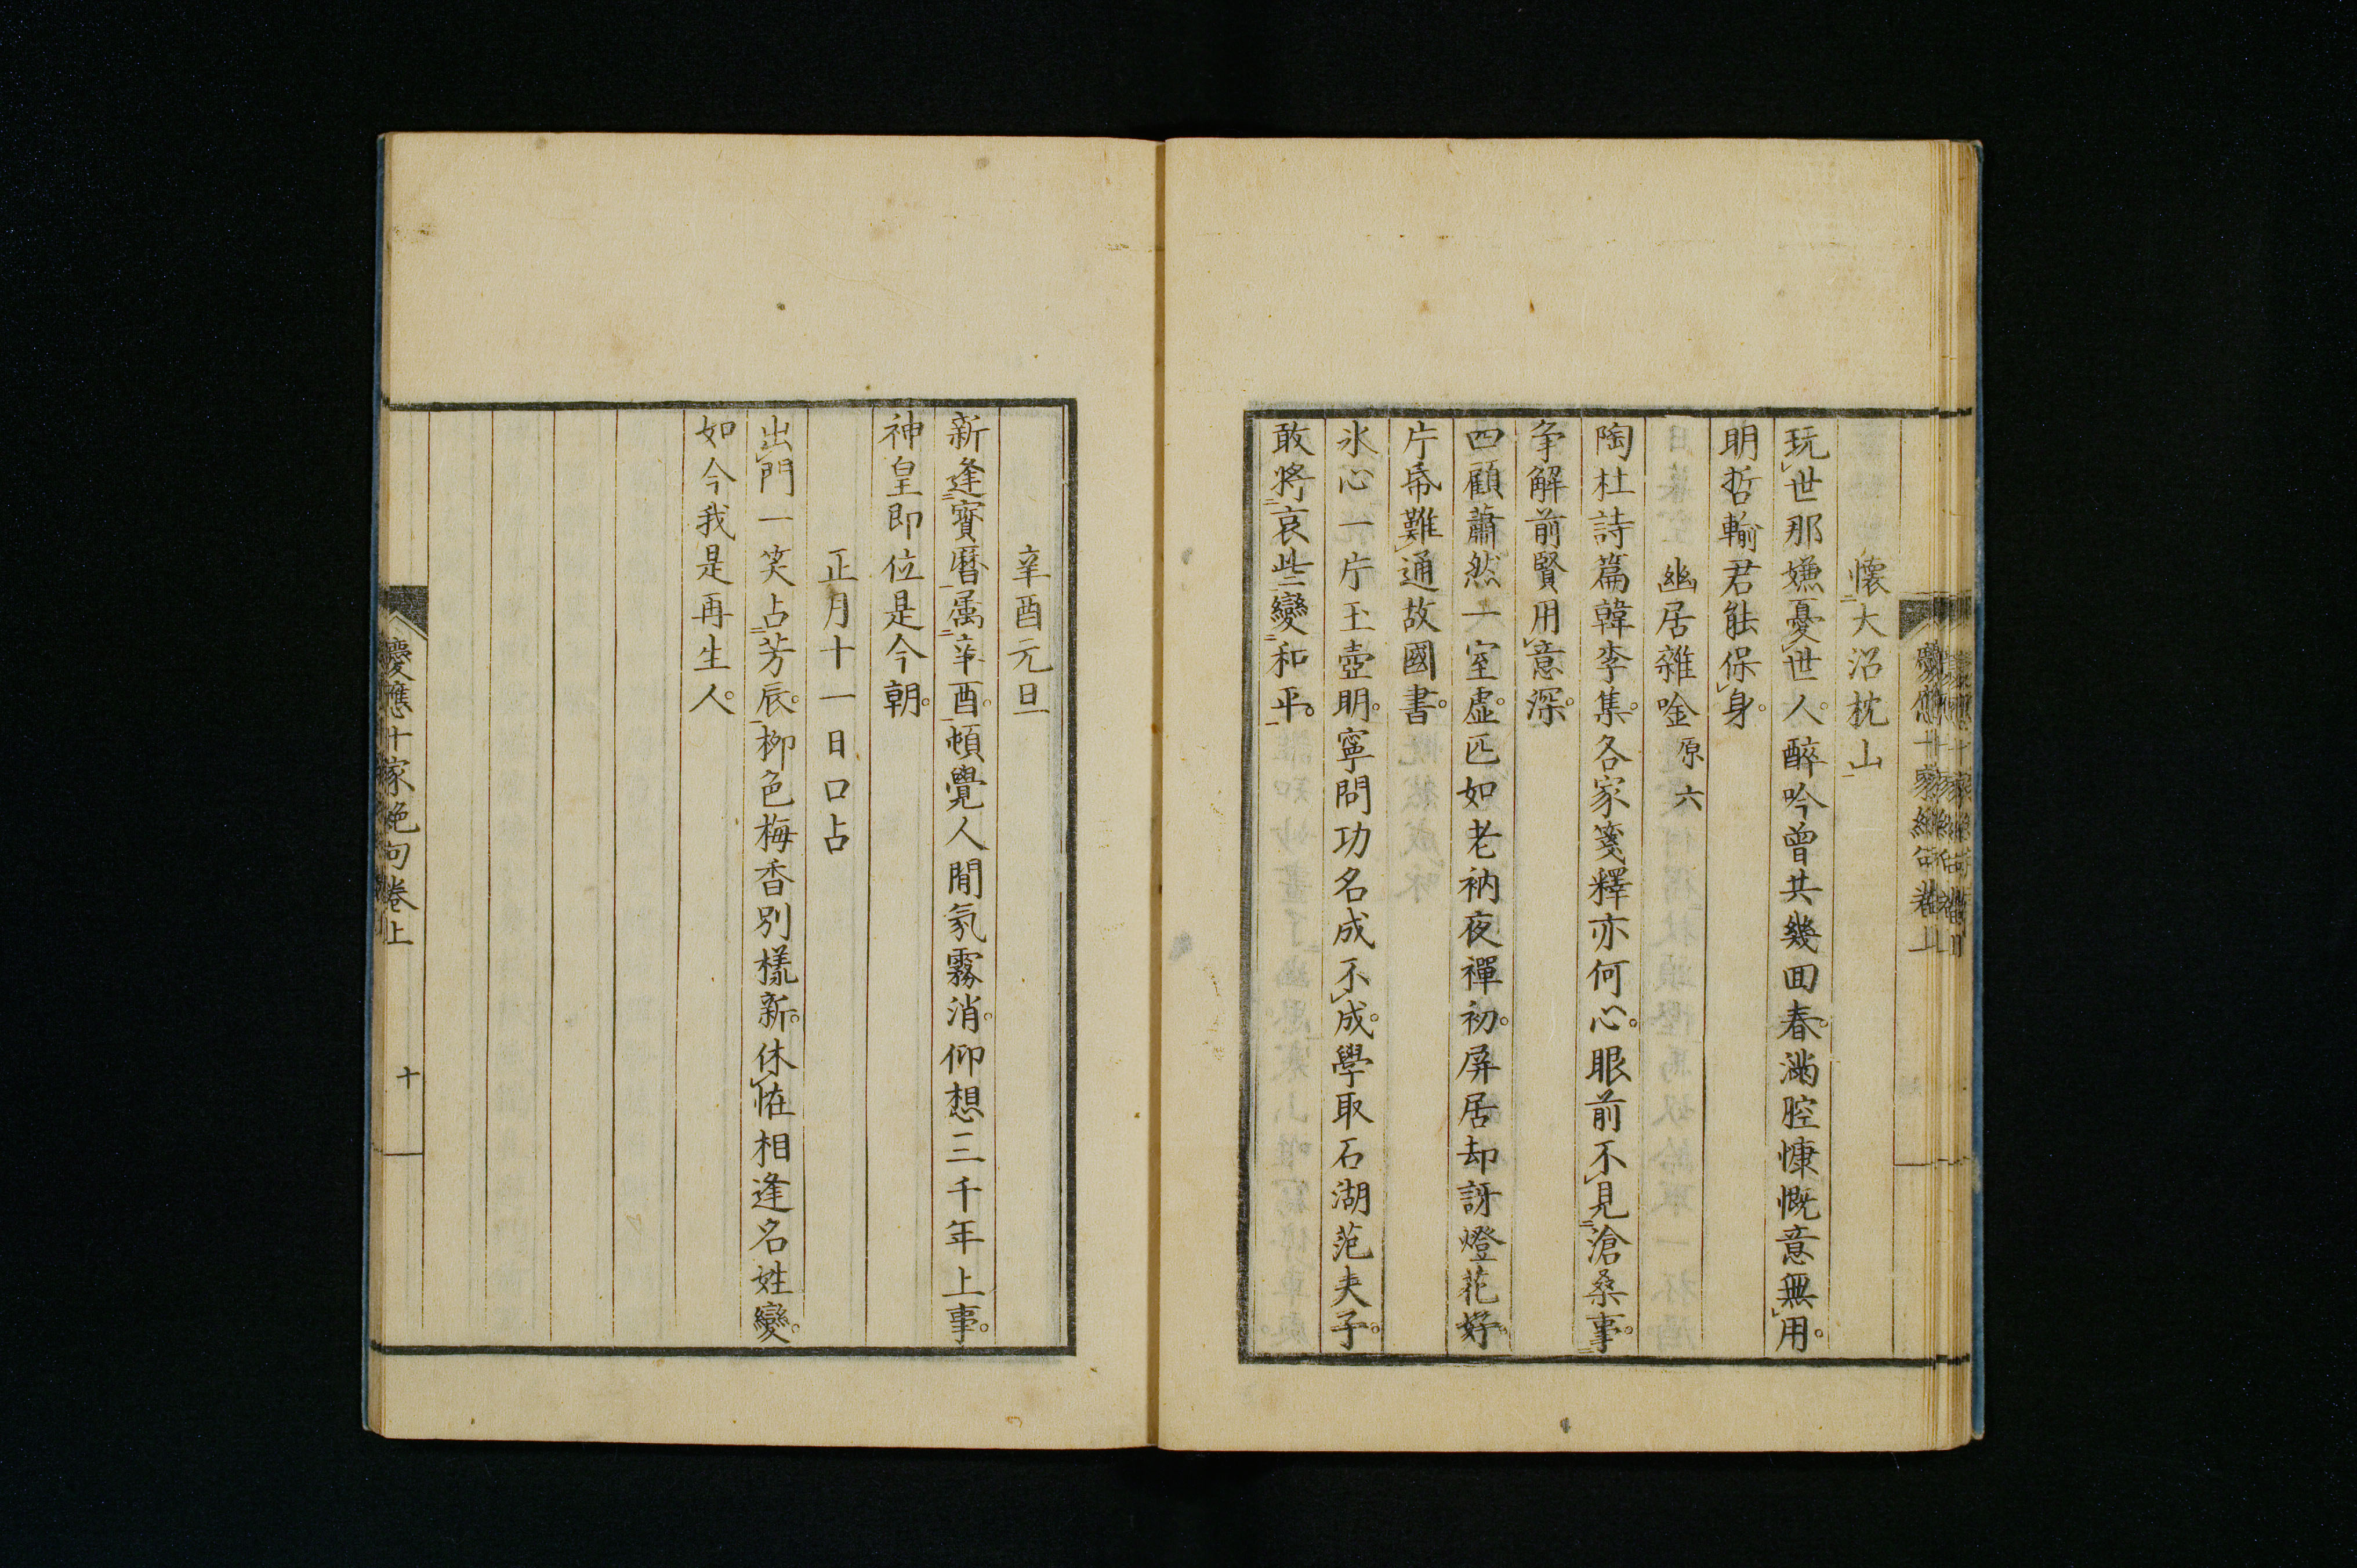 懷大沼枕山
玩世那嫌憂世人。醉吟曾共幾回春。滿腔慷慨意無用。
明哲輸君能保身。
幽居雜唫 原六
陶杜詩篇韓李集。各家箋釋亦何心。眼前不見滄桑事。
争解前賢用意深。
四顧蕭然一室虛。匹如老衲夜禪初。屏居却訝燈花好。
片帋難通故國書。
氷心一片玉壺明。寧問功名成不成。學取石湖范夫子。
敢將哀些變和平。
辛酉元旦
新逢寳曆属辛酉。頓覺人間氛霧消。仰想三千年上事。
神皇即位是今朝。
正月十一日口占
出門一笑占芳辰。柳色梅香別樣新。休恠相逢名姓變。
如今我是再生人。
慶應十家絶句卷上
十